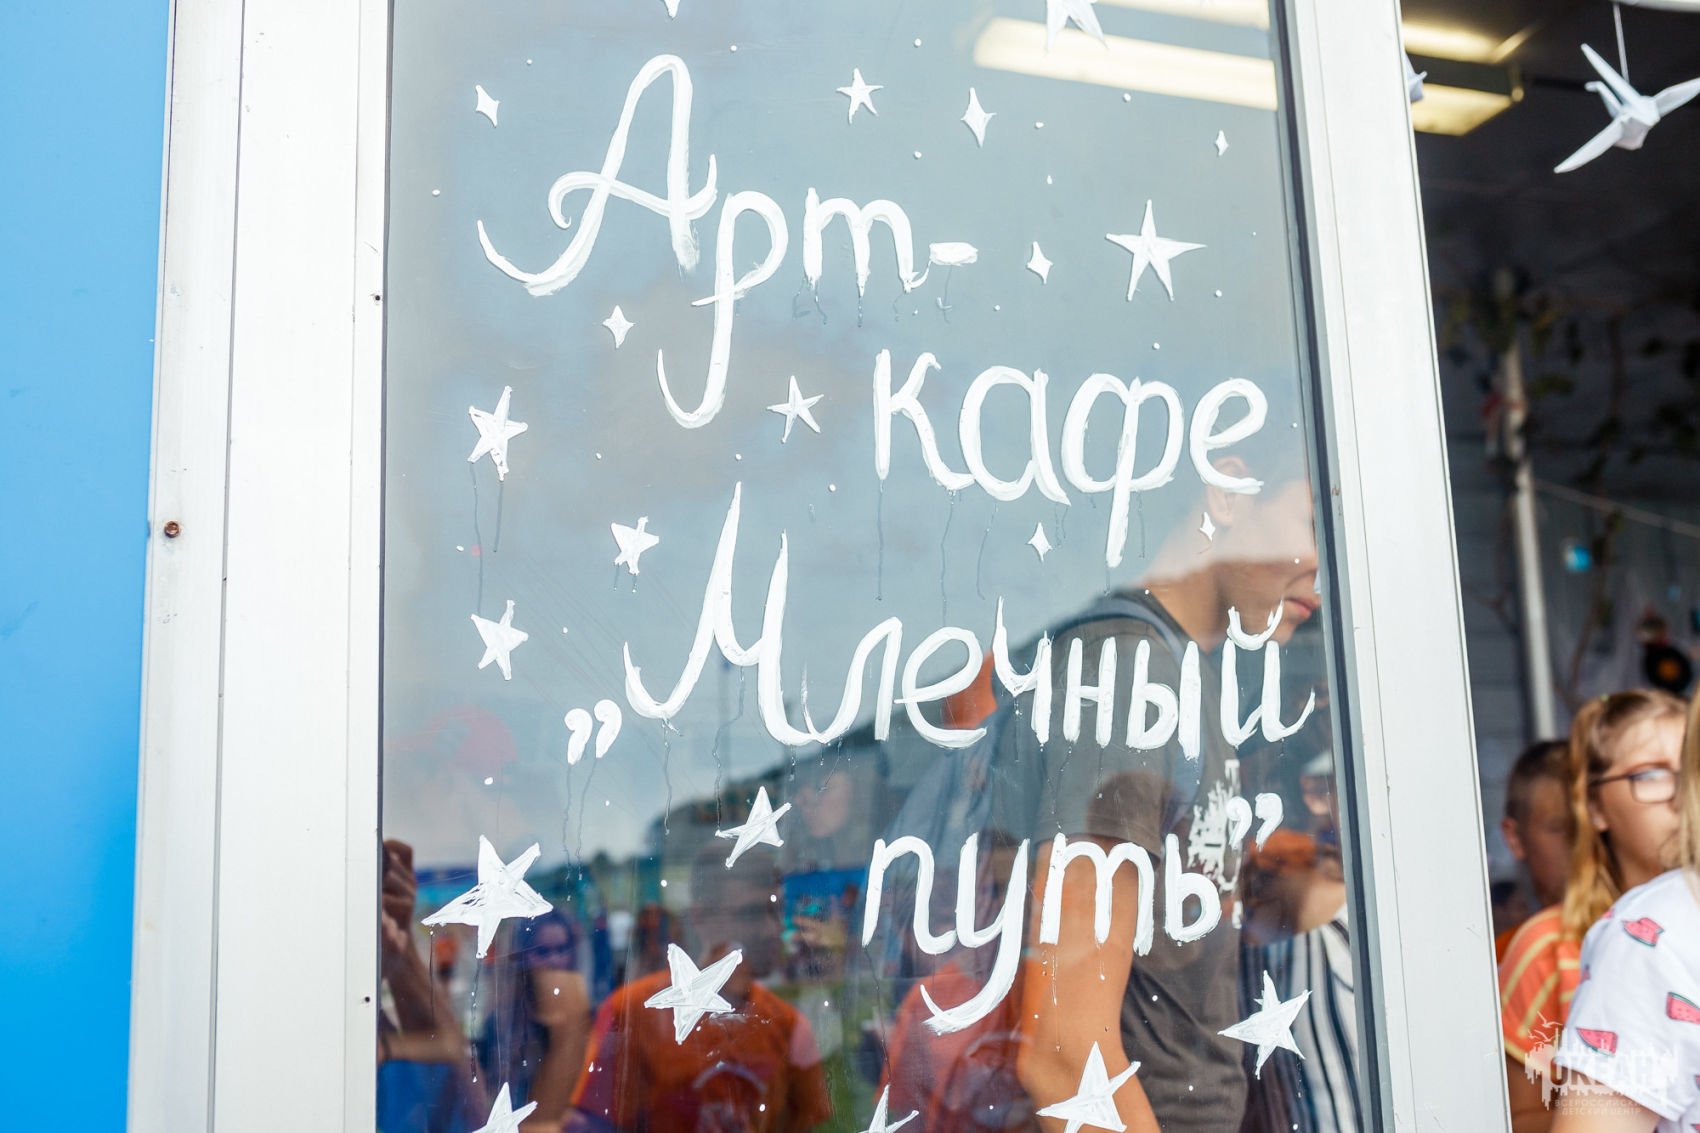 Арт-
кафе
„Млечный
путь"
ОКЕАН
ВСЕРОССИЙСКИЙ
ДЕТСКИЙ ЦЕНТР